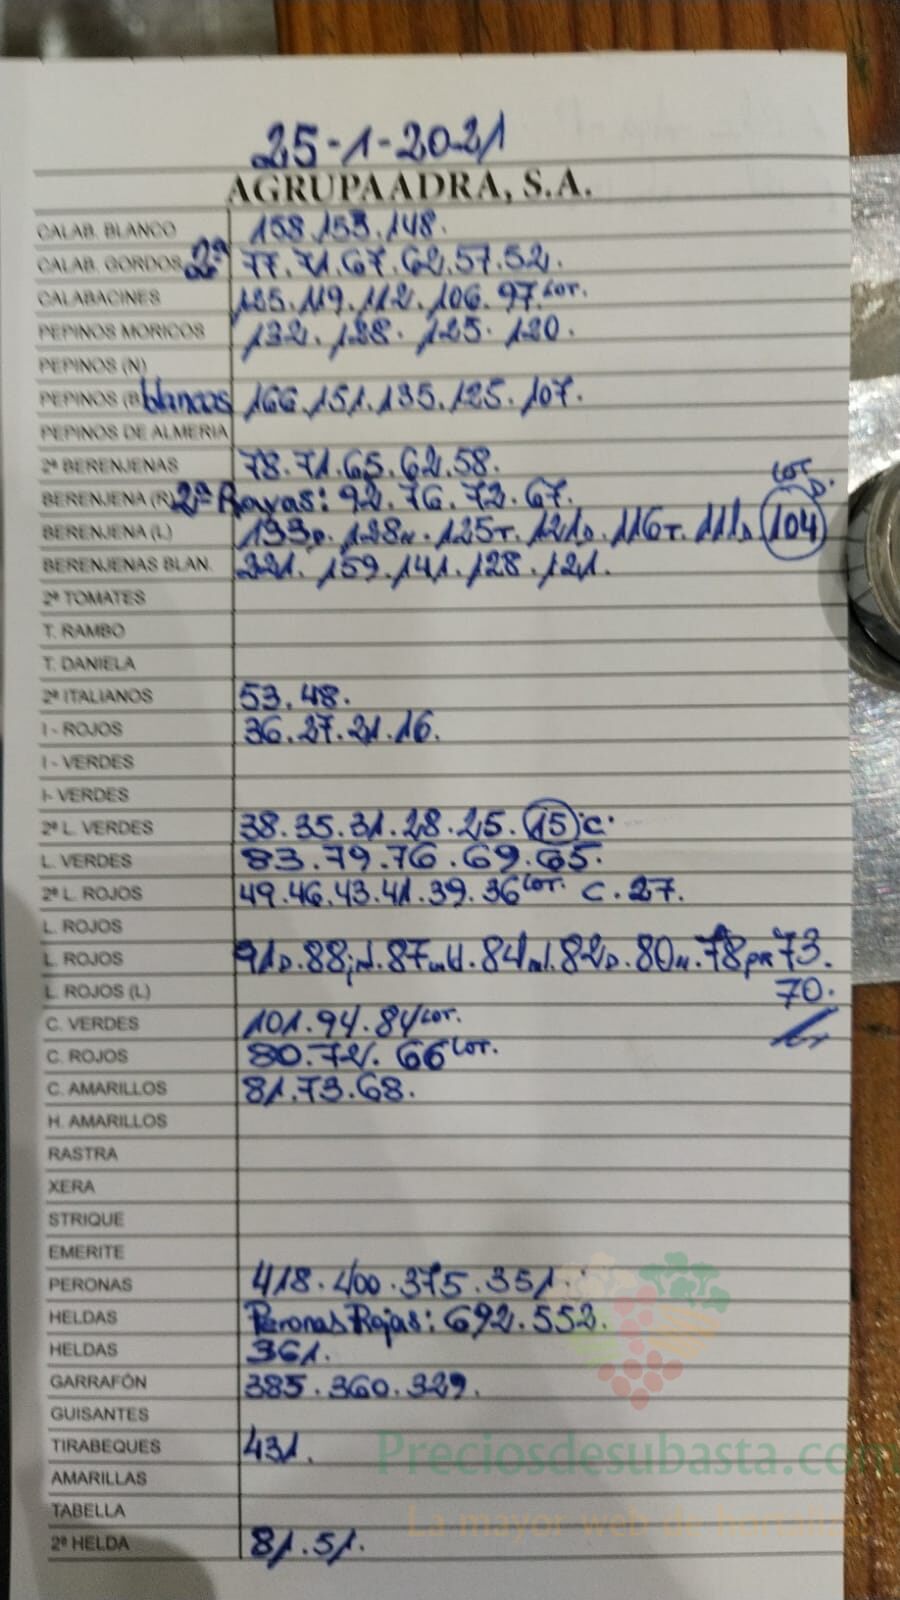 25-1-2021
AGRUPAADRA, S.A.
CALAB. BLANCO 158.153.148.
CALAB. GORDOS 2ª 77.71.67.62.57.52.
CALABACINES 125.119.112.106.97 Cor.
PEPINOS MORICOS 132.128.125.120.
PEPINOS (N)
PEPINOS (B blancos 166.151.135.125.107.
PEPINOS DE ALMERIA
2ª BERENJENAS 78.71.65.62.58.
BERENJENA (R) 2ª Rayas: 92.76.72.67. Cor D.
BERENJENA (L) 133D.128N.125T.121D.116T.111D 104
BERENJENAS BLAN. 221.159.141.128.121.
2ª TOMATES
T. RAMBO
T. DANIELA
2ª ITALIANOS 53.48.
I - ROJOS 36.27.21.16.
I - VERDES
I- VERDES
2ª L. VERDES 38.35.31.28.25. 15 C.
L. VERDES 83.79.76.69.65.
2ª L. ROJOS 49.46.43.41.39.36 Cor. C.27.
L. ROJOS
L. ROJOS 91D.88 .87 .84 .82D.80N.78 73.
L. ROJOS (L) 70.
C. VERDES 101.94.84 Cor.
C. ROJOS 80.72.66 Cor.
C. AMARILLOS 81.73.68.
H. AMARILLOS
RASTRA
XERA
STRIQUE
EMERITE
PERONAS 418.400.375.351.
HELDAS Peronas Rojas: 692.552.
HELDAS 361.
GARRAFÓN 385.360.329.
GUISANTES
TIRABEQUES 431.
Preciosdesubasta.com
AMARILLAS
TABELLA
La mayor web de hortaliz
2ª HELDA 81.51.